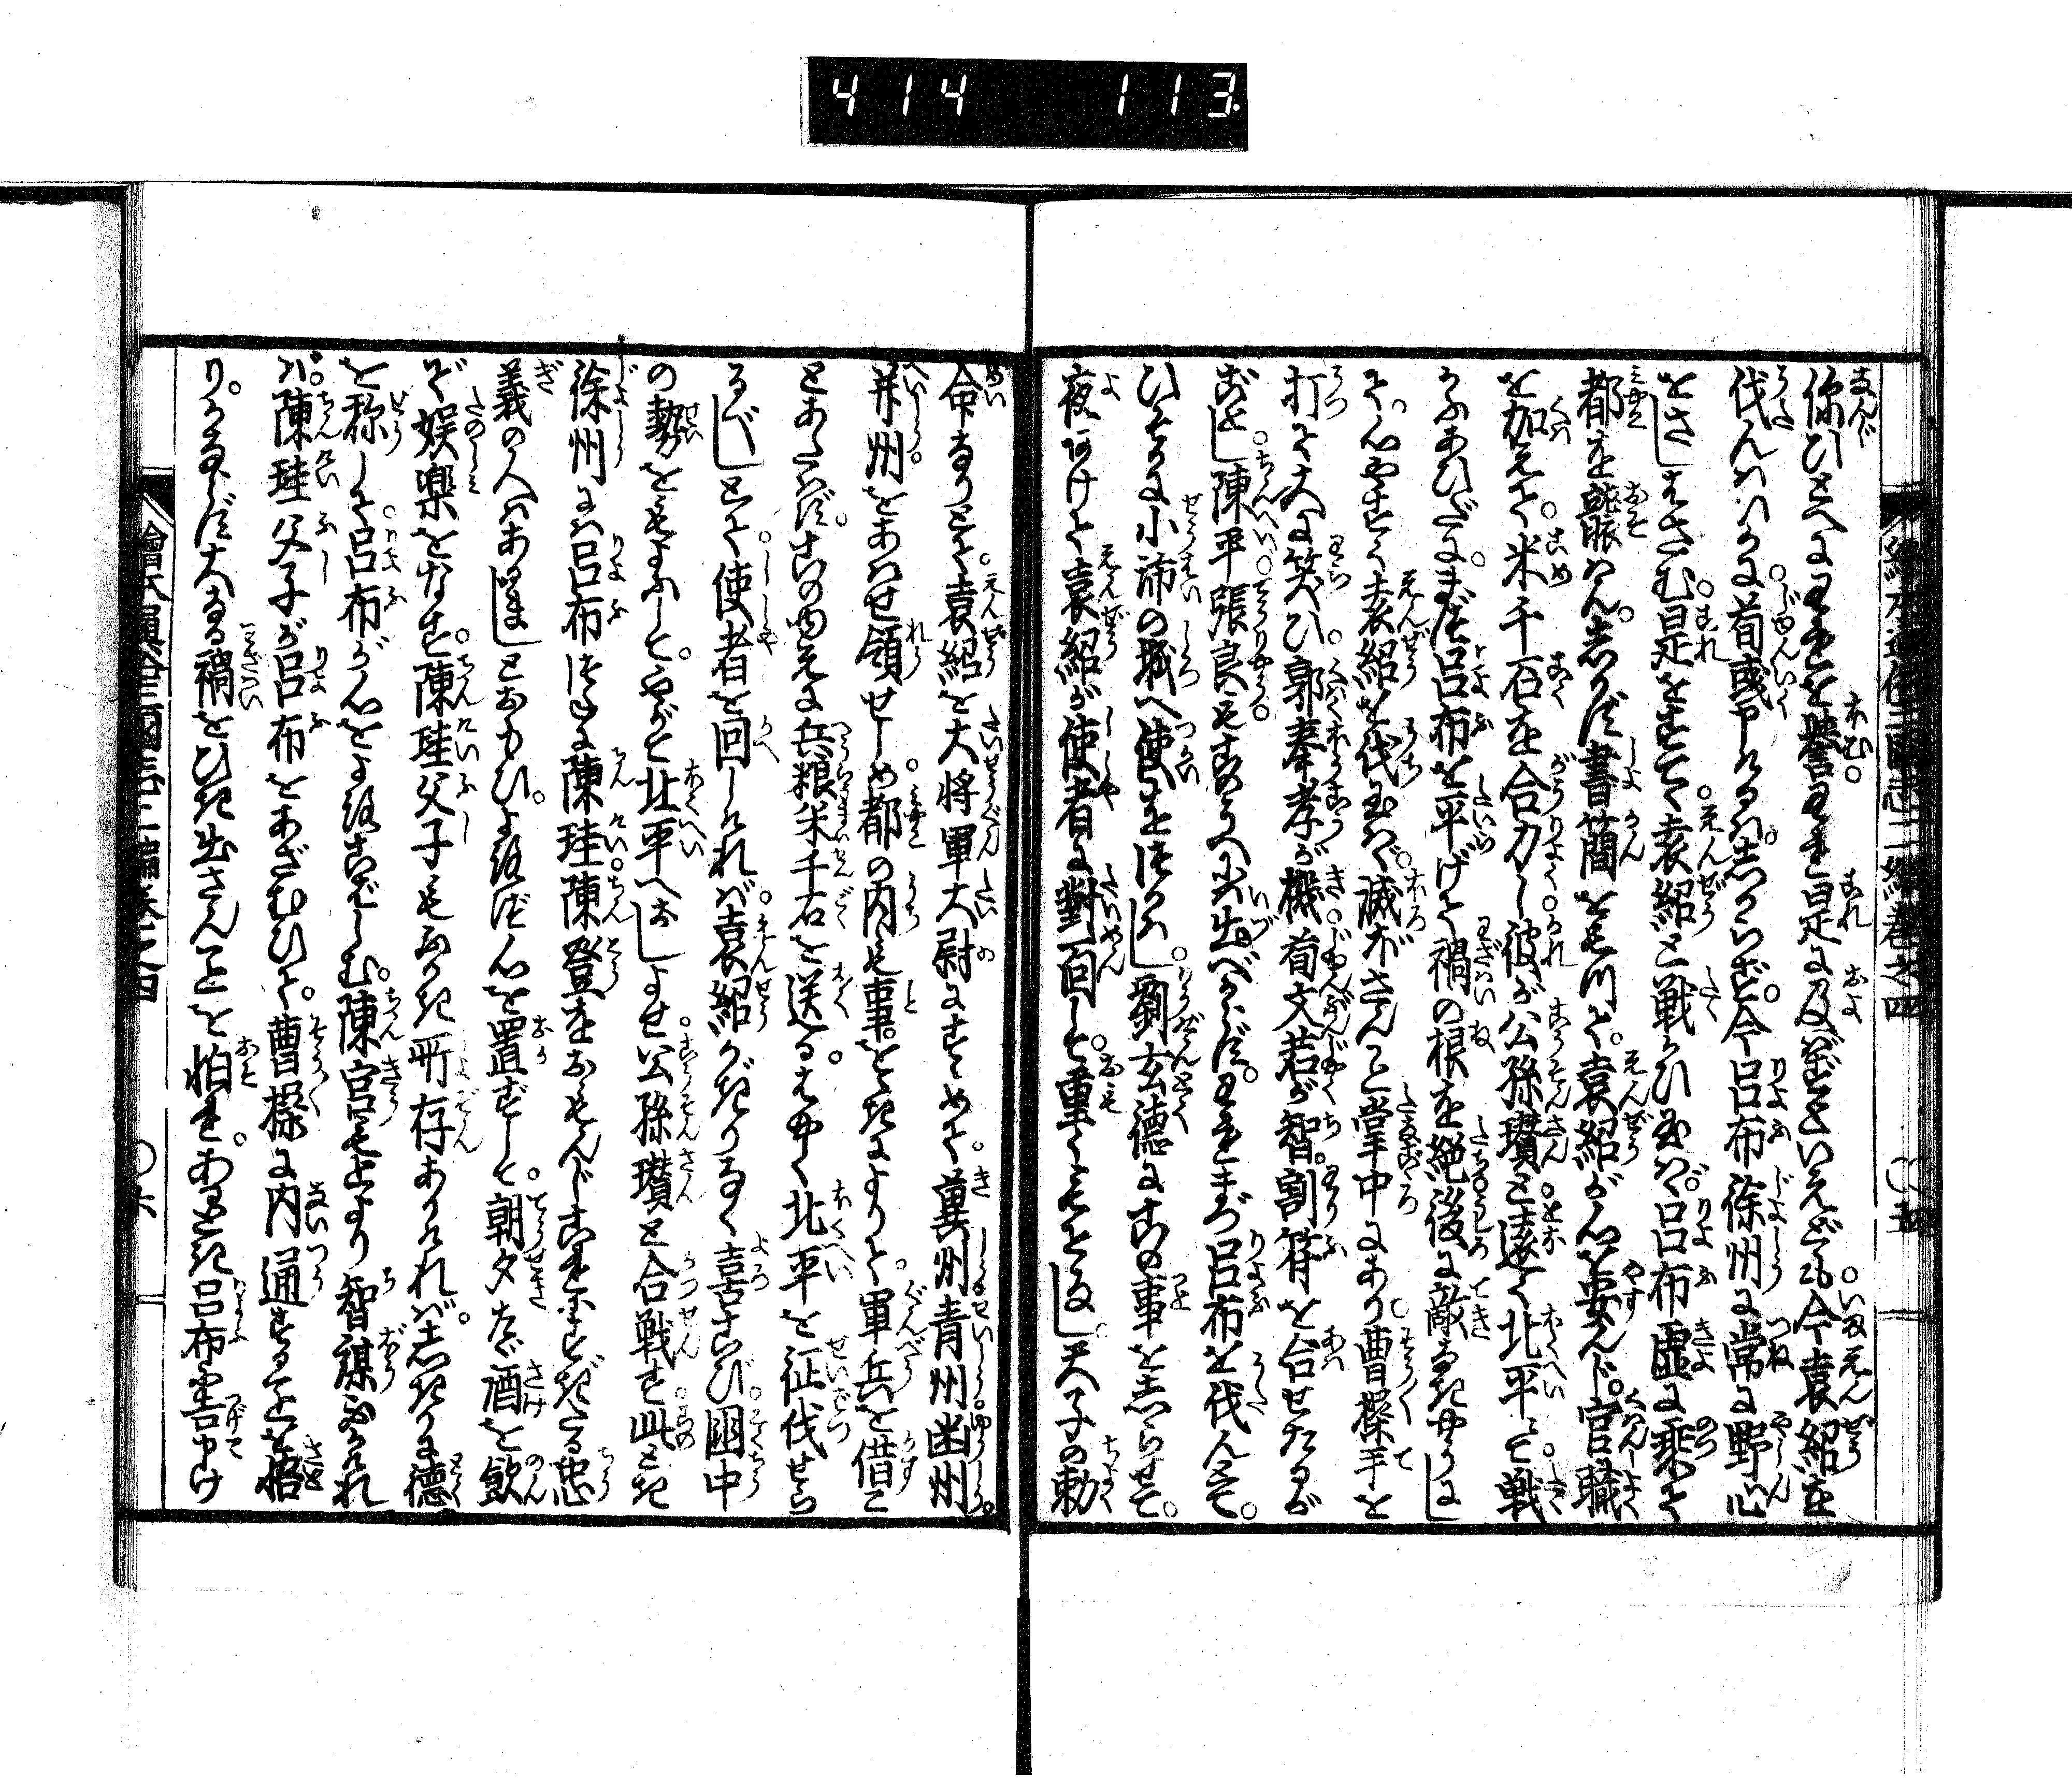 414 113
你ひとへにわれを譽われ是に及ばずといえども今袁紹を
伐んハいかに荀彧申けるハ志からず今呂布徐州に常に野心
をさしはさむ是をすてゝ袁紹と戦ひ玉ハゞ呂布虚に乗て
都を襲ん志かず書簡をもつて袁紹が心を安んじ官職
を加えて米千石を合力し彼が公孫瓚と遠く北平にて戦
かふあひだにまづ呂布を平げて禍の根を絶後に敵なきやうに
して心やすく袁紹を伐玉ハゞ滅ぼさんこと掌中にあり曹操手を
打て大に笑ひ郭奉孝が機荀文若が智割符を合せたるが
ごとし陳平張良もこのうへに出べからずわれまづ呂布を伐んとて
ひそかに小沛の城へ使をつかハし劉玄德にこの事を志らせて
夜あけて袁紹が使者に對面して重くもてなし天子の勅
命なりとて袁紹を大将軍大尉にすゝめて冀州青州幽州
并州をあハせ領せしめ都の内も事をゝきによりて軍兵を借こ
とあたハずこのゆえに兵粮米千石を送るはやく北平を征伐せら
るべしとて使者を回しけれバ袁紹かぎりなく喜こび國中
の勢をもよふしてやがて北平へおしよせ公孫瓚と合戦す此とき
徐州にハ呂布つねに陳珪陳登をおもんじこれにすぎたる忠
義の人ハあらじとおもひよらず心を置ずして朝夕たゞ酒を飲
で娯樂をなす陳珪父子もふかき所存ありけれバ志きりに德
を称して呂布が心をよろこばしむ陳宮もとより智謀ふかけれ
バ陳珪父子が呂布をあざむひて曹操に内通することを悟
りかならず大なる禍をひき出さんことを怕れあるとき呂布に告申け